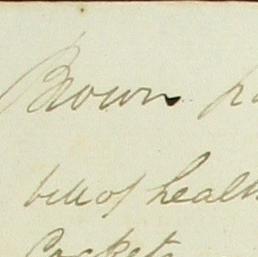 Brown
bill of health
Cockets